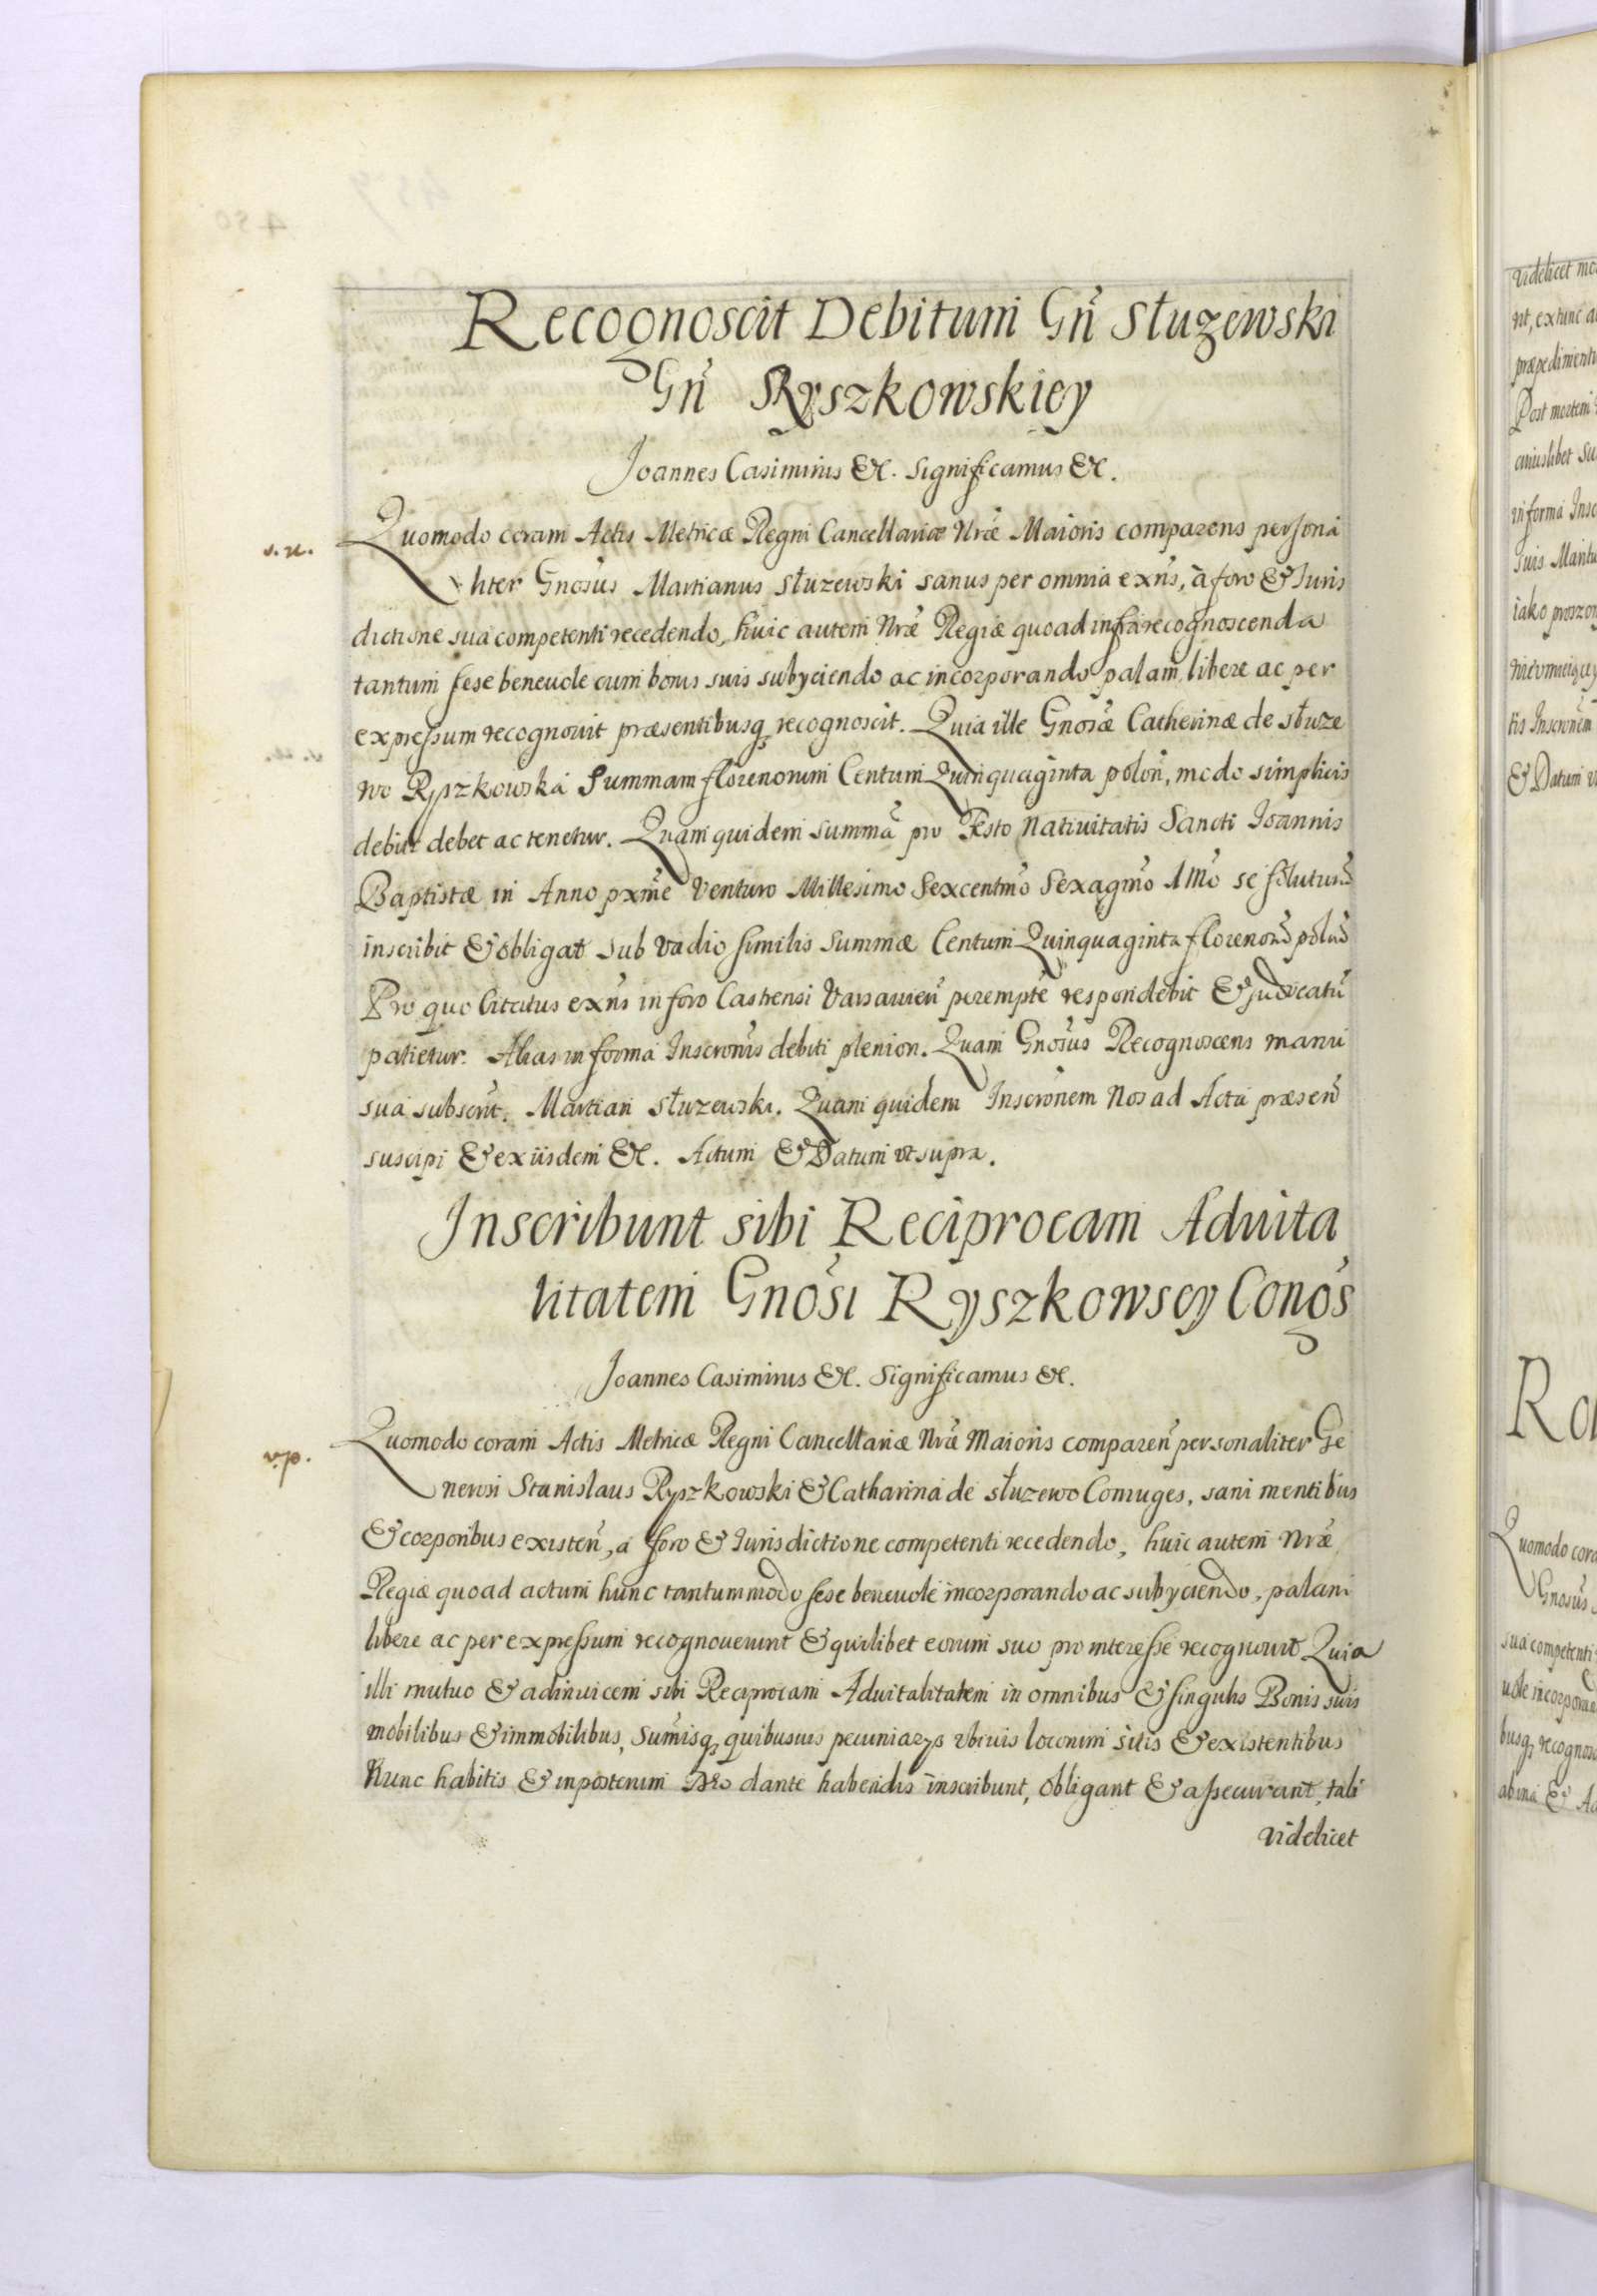 Recognoscit Debitum Gñ Słuzewski
Gñ Ryszkowskiey
Joannes Casimirus &c. Significamus &c.
Quomodo coram Actis Metricæ Regni Cancellariæ Nræ Maioris comparens persona
liter Gnosus Martianus Słuzewski sanus per omnia exñs, à foro & Iuris
dictione sua competenti recedendo, huic autem Nræ Regiæ quoad infra recognoscenda
tantum sese beneuole cum bonis suis subyciendo ac incorporando palam, libere ac per
expressum recognouit præsentibusq recognoscit. Quia ille Gnosæ Catherinæ de Słuze
wo Ryszkowska Summam florenorum Centum Quinquaginta poloñ, modo simplicis
debiti debet ac tenetur. Quam quidem summã pro Festo Natiuitatis Sancti Joannis
Baptistæ in Anno pxme Venturo Millesimo Sexcentmo Sexagmo 1mo se soluturũ
inscribit & obligat sub vadio similis summæ Centum Quinquaginta florenorũ polũ
Pro quo Citatus exñs in foro Castrensi Varsauień perempte respondebit & judicatũ
patietur. Alias in forma Inscronis debiti plenion. Quam Gnosus Recognoscens manu
sua subscrit. Martian Słuzewski. Quam quidem Inscronem Nos ad Acta præseñ
suscipi & ex iisdem &c. Actum & Datum vt supra.
Inscribunt sibi Reciprocam Aduita
litatem Gnosi Ryszkowscy Conos
Joannes Casimirus &c. Significamus &c.
Quomodo coram Actis Metricæ Regni Cancellariæ Nræ Maioris compareñ personaliter Ge
nerosi Stanislaus Ryszkowski & Catharina de Słuzewo Coniuges, sani mentibus
& corporibus existeñ, a foro & Iurisdictione competenti recedendo, huic autem Nræ
Regiæ quoad actum hunc tantummodo sese beneuole incorporando ac subyciendo, palam
libere ac per expressum recognouerunt & quilibet eorum suo pro interesse recognouit Quia
illi mutuo & adinuicem sibi Reciprocam Aduitalitatem in omnibus & singulis Bonis suis
mobilibus & immobilibus, Sumisq quibusuis pecuniarys vbiuis locorum sitis & existentibus
Nunc habitis & inposterum Deo dante habendis inscribunt, obligant & assecurant, tali
videlicet